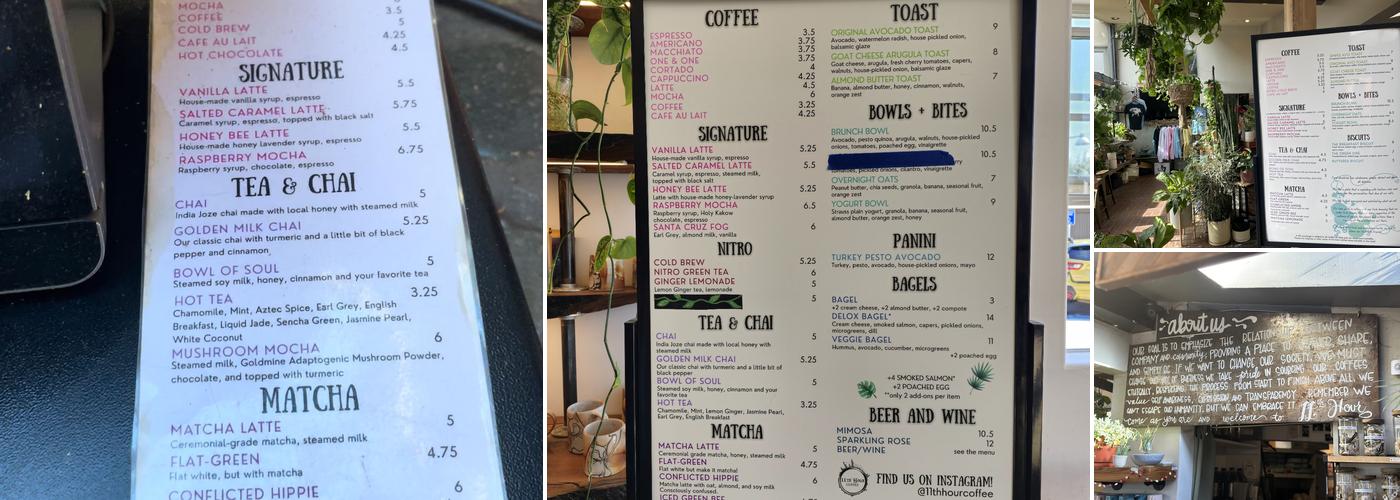 MOCHA
COFFEE 3.5
COLD BREW 5
CAFE AU LAIT 4.25
HOT CHOCOLATE 4.5
SIGNATURE
VANILLA LATTE 5.5
House-made vanilla syrup, espresso
SALTED CARAMEL LATTE 5.75
Caramel syrup, espresso, topped with black salt
HONEY BEE LATTE 5.5
House-made honey lavender syrup, espresso
RASPBERRY MOCHA 6.75
Raspberry syrup, chocolate, espresso
TEA & CHAI
CHAI 5
India Joze chai made with local honey with steamed milk
GOLDEN MILK CHAI 5.25
Our classic chai with turmeric and a little bit of black
pepper and cinnamon
BOWL OF SOUL 5
Steamed soy milk, honey, cinnamon and your favorite tea
HOT TEA 3.25
Chamomile, Mint, Aztec Spice, Earl Grey, English
Breakfast, Liquid Jade, Sencha Green, Jasmine Pearl,
White Coconut
MUSHROOM MOCHA 6
Steamed milk, Goldmine Adaptogenic Mushroom Powder,
chocolate, and topped with turmeric
MATCHA
MATCHA LATTE 5
Ceremonial-grade matcha, steamed milk
FLAT-GREEN 4.75
Flat white, but with matcha
CONFLICTED HIPPIE 6
COFFEE
ESPRESSO 3.5
AMERICANO 3.75
MACCHIATO 3.75
ONE & ONE 3.75
CORTADO 4
CAPPUCCINO 4.25
LATTE 4.5
MOCHA 6
COFFEE 3.25
CAFE AU LAIT 4.25
SIGNATURE
VANILLA LATTE 5.25
House-made vanilla syrup, espresso
SALTED CARAMEL LATTE 5.5
Caramel syrup, espresso, steamed milk,
topped with black salt
HONEY BEE LATTE 5.25
Latte with house-made honey-lavender syrup
RASPBERRY MOCHA 6.5
Raspberry syrup, Holy Kakow
chocolate, espresso
SANTA CRUZ FOG 6
Earl Grey, almond milk, vanilla
NITRO
COLD BREW 5.25
NITRO GREEN TEA 6
GINGER LEMONADE 6
Lemon Ginger tea, lemonade
5
TEA & CHAI
CHAI 5
India Joze chai made with local honey with
steamed milk
GOLDEN MILK CHAI 5.25
Our classic chai with turmeric and a little bit of
black pepper
BOWL OF SOUL 5
Steamed soy milk, honey, cinnamon and your
favorite tea
HOT TEA 3.25
Chamomile, Mint, Lemon Ginger, Jasmine Pearl,
Earl Grey, English Breakfast
MATCHA
MATCHA LATTE 5
Ceremonial grade matcha, honey, steamed milk
FLAT-GREEN 4.75
Flat white but make it matcha!
CONFLICTED HIPPIE 6
Matcha latte with oat, almond, and soy milk
Consciously confused.
ICED GREEN BEE
TOAST
ORIGINAL AVOCADO TOAST 9
Avocado, watermelon radish, house pickled onion,
balsamic glaze
GOAT CHEESE ARUGULA TOAST 8
Goat cheese, arugula, fresh cherry tomatoes, capers,
walnuts, house-pickled onion, balsamic glaze
ALMOND BUTTER TOAST 7
Banana, almond butter, honey, cinnamon, walnuts,
orange zest
BOWLS + BITES
BRUNCH BOWL 10.5
Avocado, pesto quinoa, arugula, walnuts, house-pickled
onions, tomatoes, poached egg, vinaigrette
10.5
tomatoes, pickled onions, cilantro, vinaigrette
OVERNIGHT OATS 7
Peanut butter, chia seeds, granola, banana, seasonal fruit,
orange zest
YOGURT BOWL 9
Straus plain yogurt, granola, banana, seasonal fruit,
almond butter, orange zest, honey
PANINI
TURKEY PESTO AVOCADO 12
Turkey, pesto, avocado, house-pickled onions, mayo
BAGELS
BAGEL 3
+2 cream cheese, +2 almond butter, +2 compote
DELOX BAGEL* 14
Cream cheese, smoked salmon, capers, pickled onions,
microgreens, dill
VEGGIE BAGEL 11
Hummus, avocado, cucumber, microgreens
+2 poached egg
+4 SMOKED SALMON*
+2 POACHED EGG
**only 2 add-ons per item
BEER AND WINE
MIMOSA 10.5
SPARKLING ROSE 12
BEER/WINE see the menu
11TH HOUR
FIND US ON INSTAGRAM!
@11thhourcoffee
COFFEE
SIGNATURE
TEA & CHAI
MATCHA
TOAST
BOWLS + BITES
BISCUITS
about us
OUR GOAL IS TO EMPHASIZE THE RELATION BETWEEN
COMPANY and community; PROVIDING A PLACE TO GATHER, SHARE,
AND SIMPLY BE. IF WE WANT TO CHANGE OUR SOCIETY, WE MUST
CHANGE OUR WAY OF BUSINESS. WE TAKE pride IN SOURCING OUR COFFEES
ETHICALLY, RESPECTING THE PROCESS FROM START TO FINISH. ABOVE ALL, WE
value SELF AWARENESS, EXPRESSION AND TRANSPARENCY. REMEMBER WE
CAN'T ESCAPE OUR HUMANITY, BUT WE CAN EMBRACE IT.
come as you are and welcome to 11th Hour